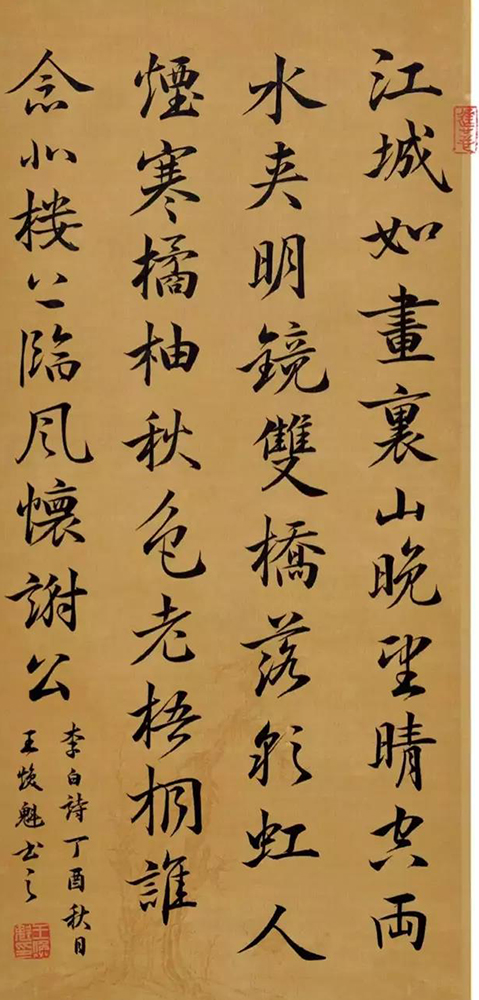 江城如畫裏山晚望晴空兩
水夹明鏡雙橋落彩虹人
煙寒橘柚秋色老梧桐誰
念北樓上臨風懷謝公
李白詩丁酉秋日
王魁书之